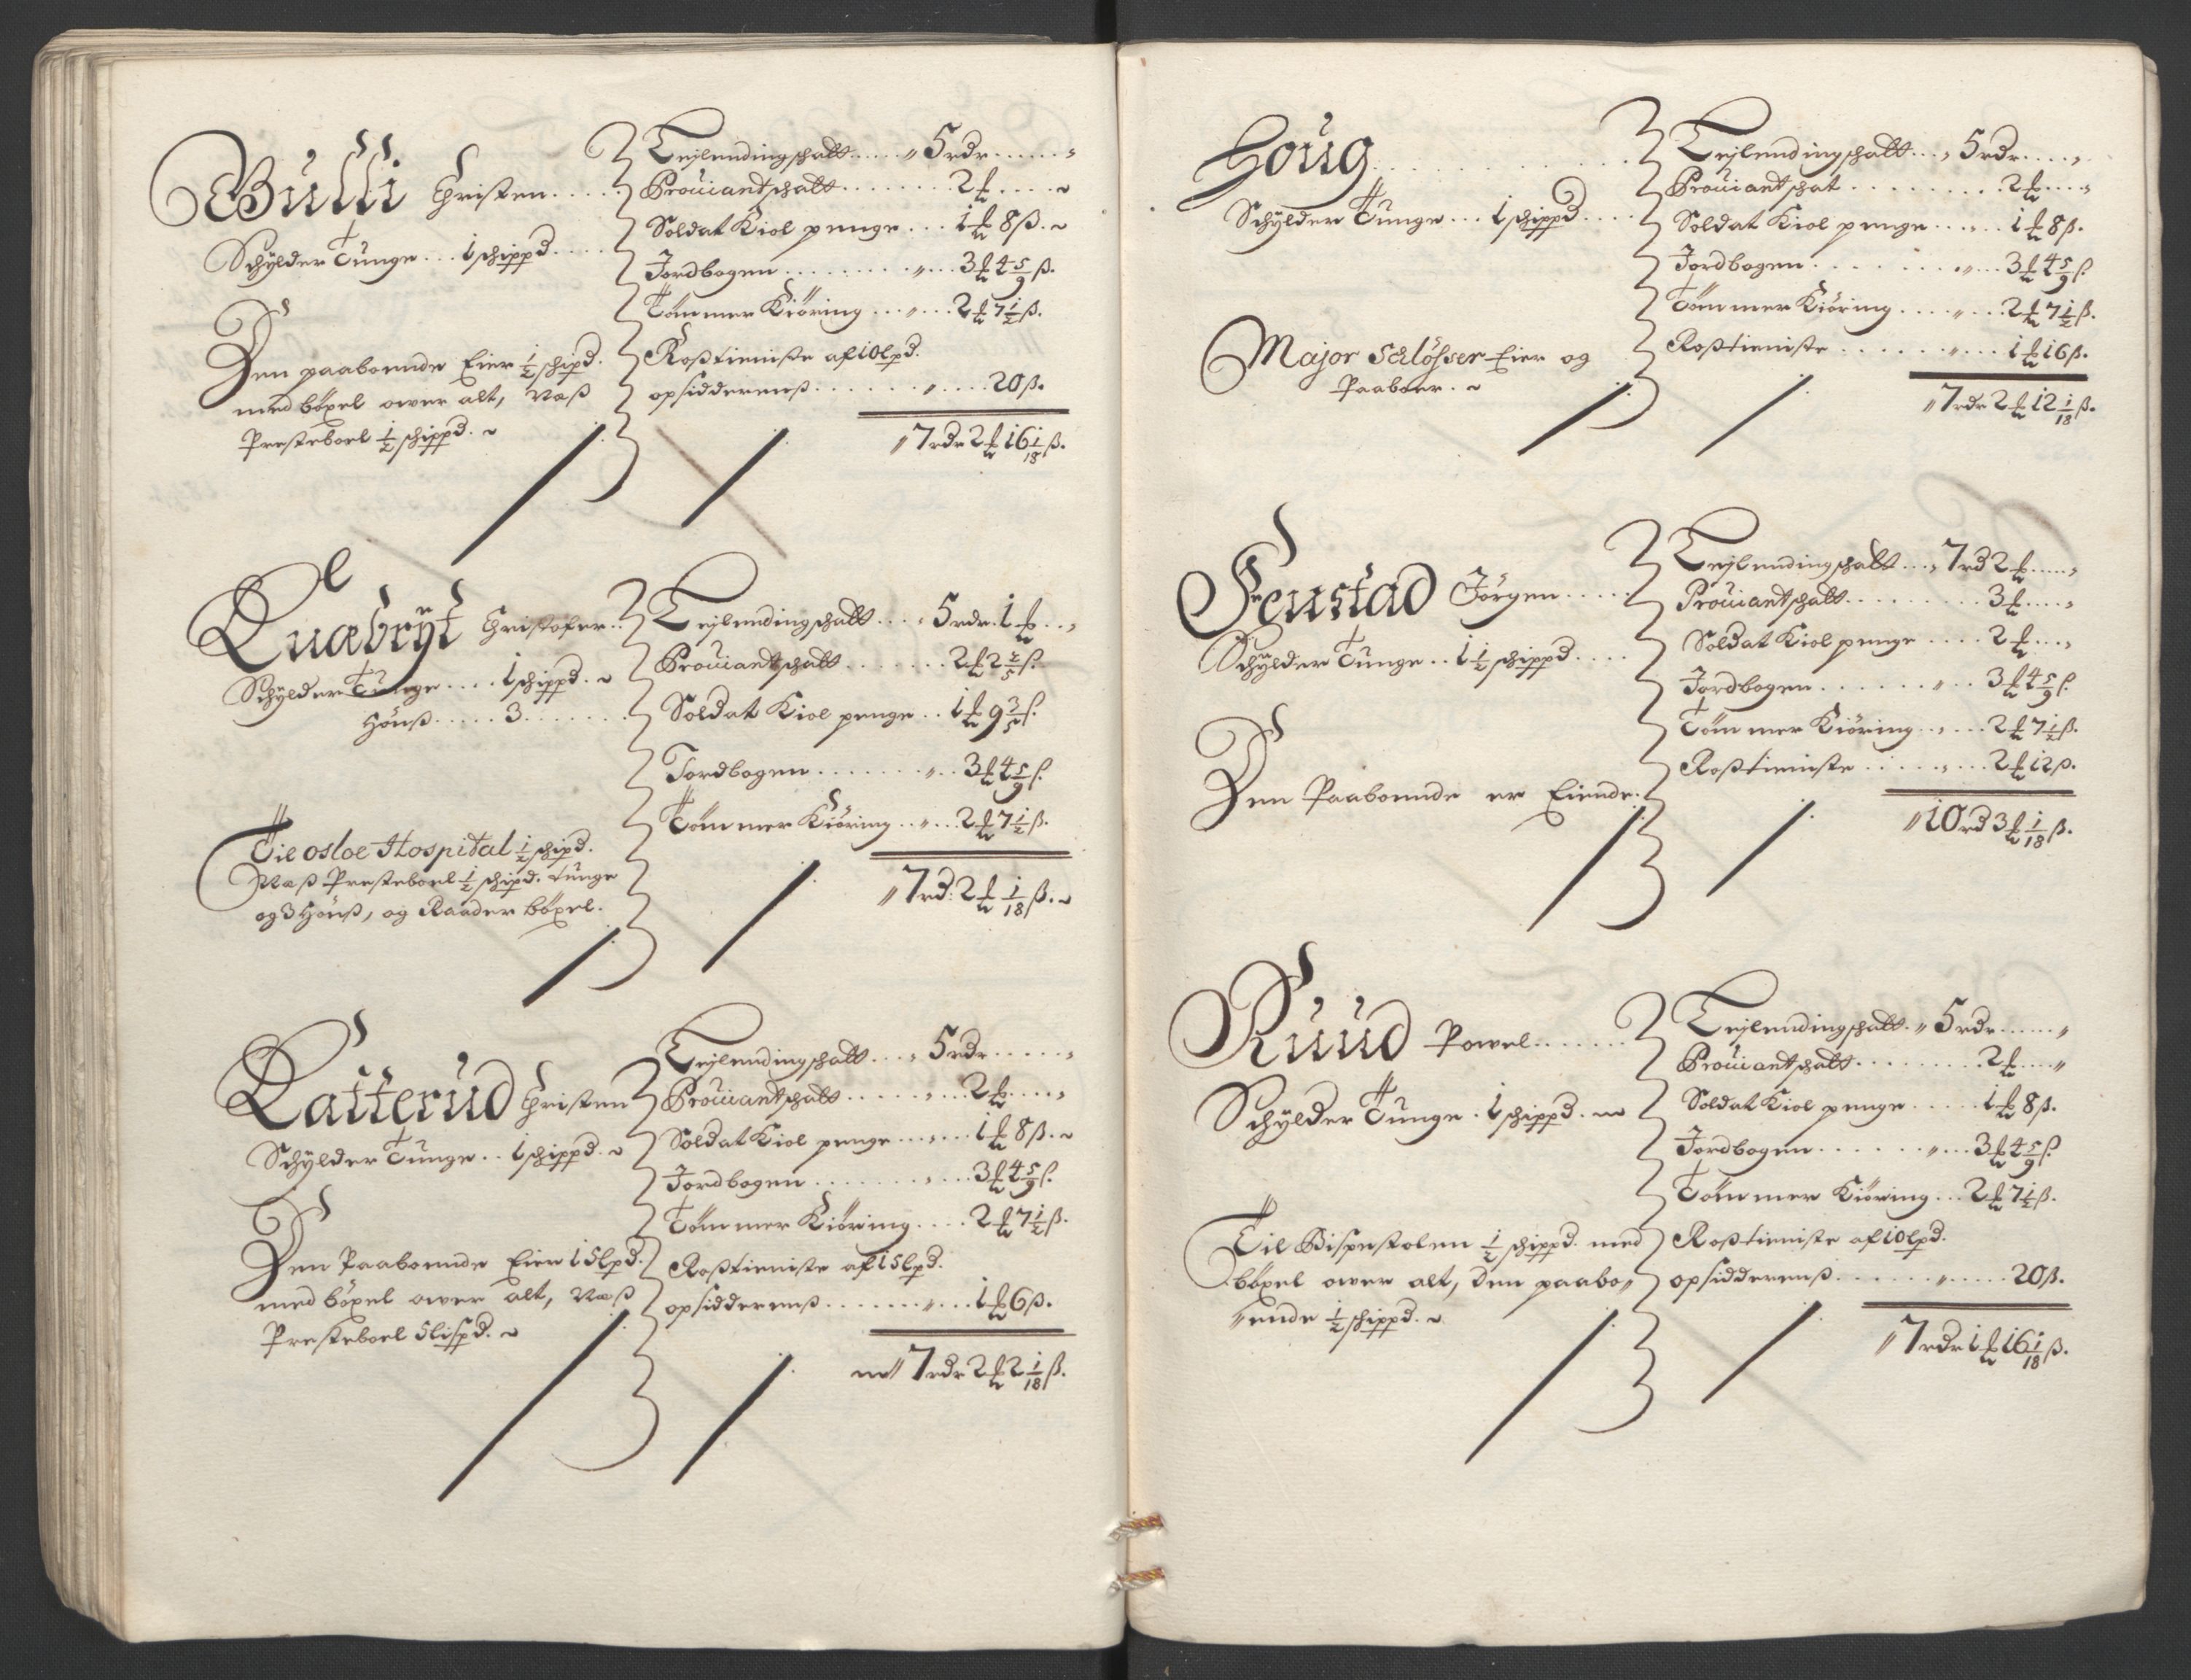 Bulli Christen.....
Schylder Tunge... 1 schippd....
Den paaboende Eier ½ schipd.
med böxel ower alt, Næß
Presteboel ½ schippd.
Leylendingschatt....." 5 rdr......"
Prouiantschatt........ 2 ℔....
Soldat Kiol penge... 1 ℔ 8 ß.
Jordbogen........."... 3 ℔ 4 5/9 ß.
Tömmer Kiöring..."... 2 ℔ 7 ½ ß.
Roßtieniste af 10 lpd.
opsidderenß......."..... 20 ß.
" 7 rdr 2 ℔ 16 1/18 ß.
Quæbryt Christofer..
Schylder Tunge.... 1 schippd.
Hönß..... 3.......
Til Osloe Hospital ½ schipd.
Næß Presteboel ½ schipd. tunge
og 3 Hönß, og Raader böxel.
Leylendingschatt.... 5 rdr. 1 ℔..."
Prouiantschatt....... 2 ℔ 2 2/5 ß.
Soldat Kiol penge.. 1 ℔ 9 3/5 ß.
Jordbogen......."... 3 ℔ 4 5/9 ß.
Tömmer Kiöring.."... 2 ℔ 7 ½ ß.
" 7 rd: 2 ℔ 1/18 ß.
Latterud Christen
Schylder Tunge.. 1 schippd.
Den Paaboende Eier 15 lpd.
med böxel ower alt, Næß
Presteboel 5 lispd.
Leylendingschatt...." 5 rdr......"
Prouiantschatt....."... 2 ℔....."
Soldat Kiol penge...."... 1 ℔ 8 ß.
Jordbogen........"... 3 ℔ 4 5/9 ß.
Tömmer Kiöring.... 2 ℔ 7 ½ ß.
Roßtieniste af 15 lpd.
opsidderenß......."... 1 ℔ 6 ß.
" 7 rdr 2 ℔ 2 1/18 ß.
Houg..........
Schylder Tunge... 1 schippd....
Major Schlösser Eier og
Paaboer.
Leylendingschatt..." 5 rdr....."
Prouiantschat........ 2 ℔....."
Soldat Kiol penge...".. 1 ℔ 8 ß.
Jordbogen........"... 3 ℔ 4 5/9 ß.
Tömmer Kiöring...."... 2 ℔ 7 ½ ß.
Roßtieniste......."... 1 ℔ 16 ß.
" 7 rdr 2 ℔ 12 1/18 ß.
Fenstad Jörgen.....
Schylder Tunge.. 1 ½ schippd....
Den Paaboende er Eiende.
Leylendingschatt..." 7 rd 2 ℔....."
Prouiantschatt........ 3 ℔....."
Soldat Kiol penge.... 2 ℔...."
Jordbogen......."... 3 ℔ 4 5/9 ß.
Tömmer Kiöring..."... 2 ℔ 7 ½ ß.
Roßtieniste......"... 2 ℔ 12 ß.
" 10 rd 3 ℔ 1/18 ß.
Ruud Powel......
Schylder Tunge. 1 schippd.
Til Bispestolen ½ schippd. med
böxel ower alt, den paabo"
"ende ½ schippd.
Leylendingschatt." 5 rdr......"
Prouiantschatt........ 2 ℔...."
Soldat Kiol penge..... 1 ℔ 8 ß.
Jordbogen......."... 3 ℔ 4 5/9 ß.
Tömmer Kiöring... 2 ℔ 7 ½ ß.
Roßtieniste af 10 lpd.
opsidderenß......."..... 20 ß.
" 7 rdr 1 ℔ 16 1/18 ß.